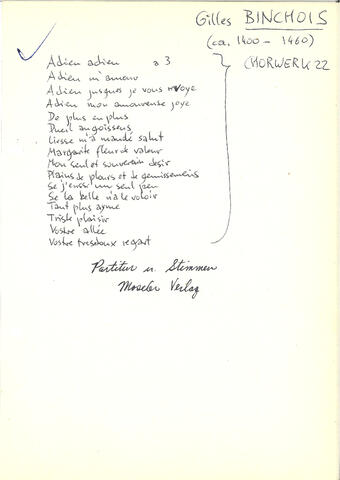 Gilles BINCHOIS
(ca. 1400 - 1460)
CHORWERK 22
Adieu adieu a 3
Adieu m'amour
Adieu jusques je vous revoye
Adieu mon amoureuse joye
De plus en plus
Dueil angoisseus
Liesse m'a mandé salut
Margarite fleur de valeur
Mon seul et souverain desir
Plains de plours et de gemissemens
Se j'eusse un seul peu
Se la belle n'a le voloir
Tant plus ayme
Triste plaisir
Vostre allée
Vostre tresdoux regart
Partitur u. Stimmen
Moseler Verlag